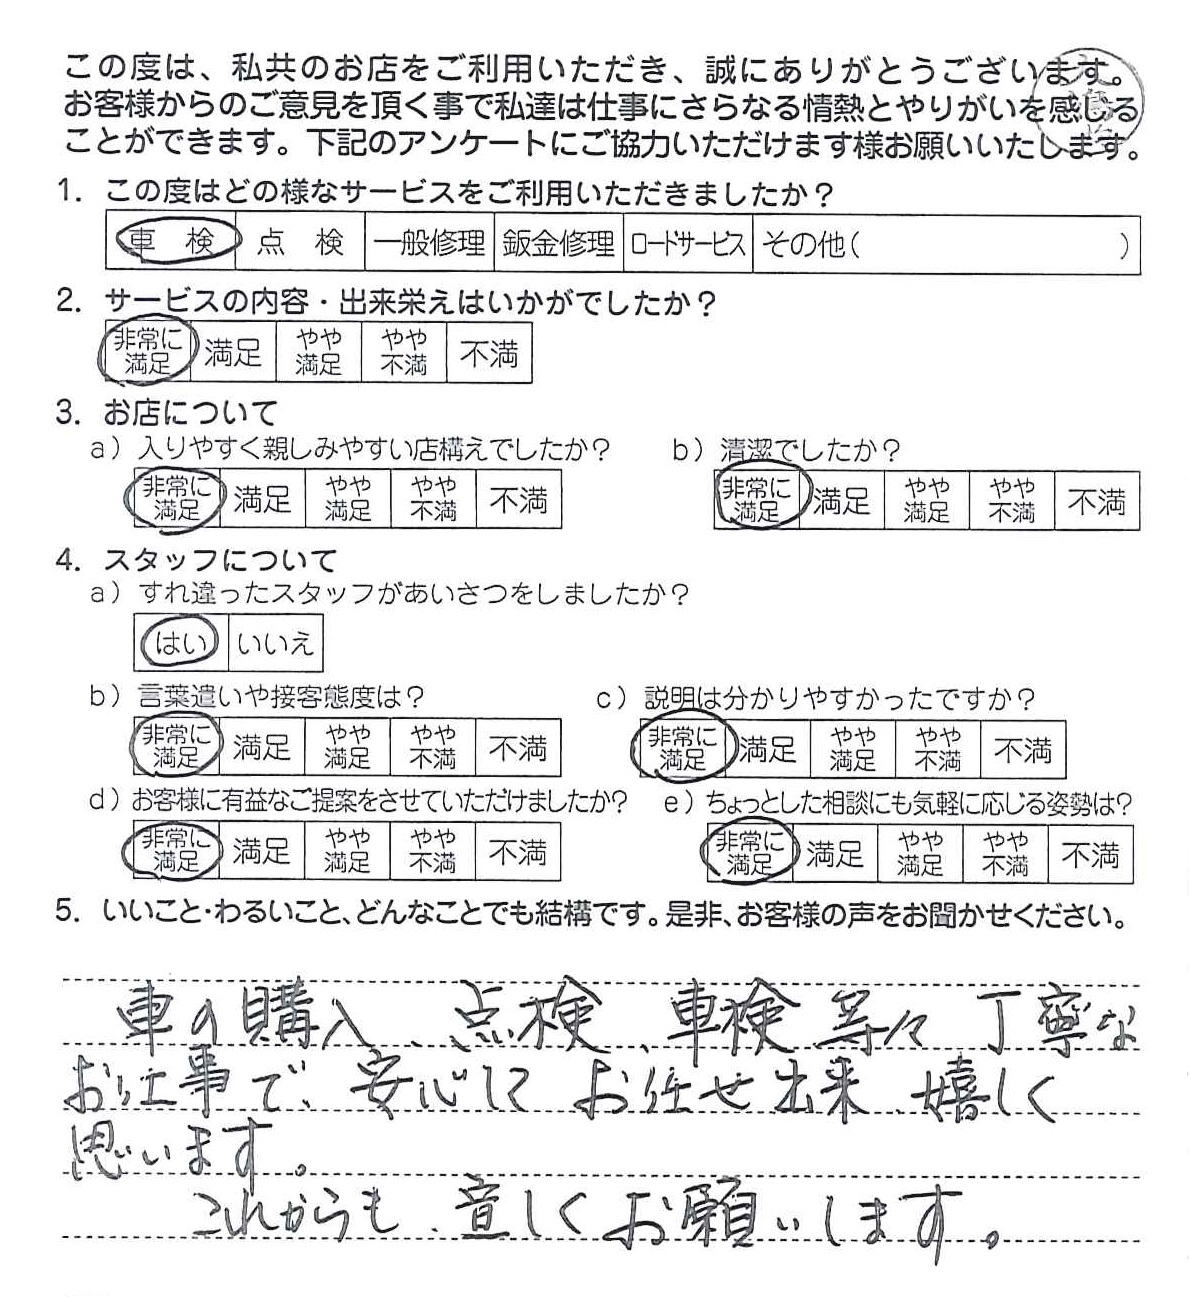 この度は、私共のお店をご利用いただき、誠にありがとうございます。
お客様からのご意見を頂く事で私達は仕事にさらなる情熱とやりがいを感じる
ことができます。下記のアンケートにご協力いただけます様お願いいたします。
1. この度はどの様なサービスをご利用いただきましたか？
車 検 点 検 一般修理 鈑金修理 ロードサービス その他( )
2. サービスの内容・出来栄えはいかがでしたか？
非常に満足 満足 やや満足 やや不満 不満
3. お店について
a）入りやすく親しみやすい店構えでしたか？ b）清潔でしたか？
非常に満足 満足 やや満足 やや不満 不満 非常に満足 満足 やや満足 やや不満 不満
4. スタッフについて
a）すれ違ったスタッフがあいさつをしましたか？
はい いいえ
b）言葉遣いや接客態度は？ c）説明は分かりやすかったですか？
非常に満足 満足 やや満足 やや不満 不満 非常に満足 満足 やや満足 やや不満 不満
d）お客様に有益なご提案をさせていただけましたか？ e）ちょっとした相談にも気軽に応じる姿勢は？
非常に満足 満足 やや満足 やや不満 不満 非常に満足 満足 やや満足 やや不満 不満
5. いいこと・わるいこと、どんなことでも結構です。是非、お客様の声をお聞かせください。
車の購入、点検、車検等々丁寧な
お仕事で、安心してお任せ出来、嬉しく
思います。
これからも、宜しくお願いします。